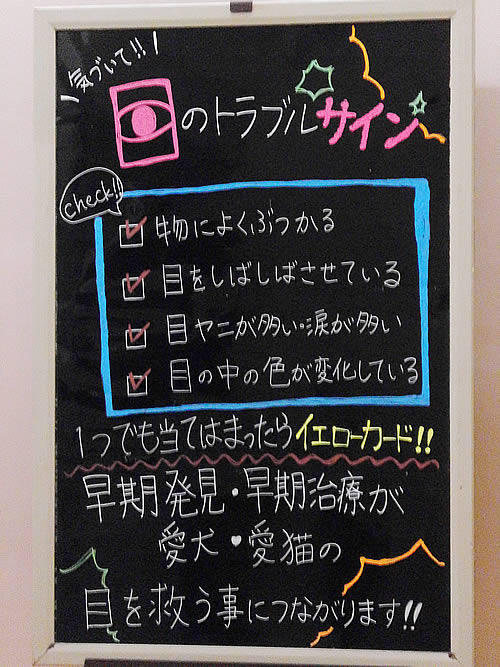 気づいて!!
目のトラブルサイン
check!!
物によくぶつかる
目をしばしばさせている
目ヤニが多い・涙が多い
目の中の色が変化している
1つでも当てはまったらイエローカード!!
早期発見・早期治療が
愛犬・愛猫の
目を救う事につながります!!